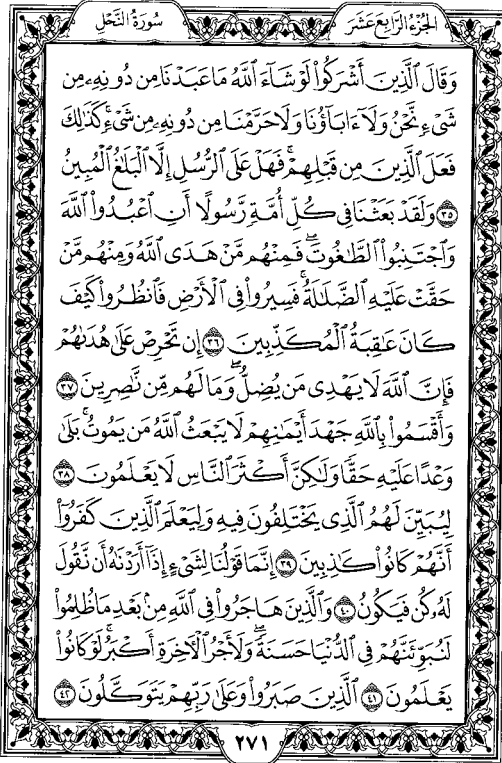 الجزء الرابع عشر
سورة النحل
وَقَالَ ٱلَّذِينَ أَشْرَكُوا۟ لَوْ شَآءَ ٱللَّهُ مَا عَبَدْنَا مِن دُونِهِۦ مِن
شَىْءٍ نَّحْنُ وَلَآ ءَابَآؤُنَا وَلَا حَرَّمْنَا مِن دُونِهِۦ مِن شَىْءٍ ۚ كَذَٰلِكَ
فَعَلَ ٱلَّذِينَ مِن قَبْلِهِمْ ۚ فَهَلْ عَلَى ٱلرُّسُلِ إِلَّا ٱلْبَلَٰغُ ٱلْمُبِينُ
٣٥ وَلَقَدْ بَعَثْنَا فِى كُلِّ أُمَّةٍ رَّسُولًا أَنِ ٱعْبُدُوا۟ ٱللَّهَ
وَٱجْتَنِبُوا۟ ٱلطَّٰغُوتَ ۖ فَمِنْهُم مَّنْ هَدَى ٱللَّهُ وَمِنْهُم مَّنْ
حَقَّتْ عَلَيْهِ ٱلضَّلَٰلَةُ ۚ فَسِيرُوا۟ فِى ٱلْأَرْضِ فَٱنظُرُوا۟ كَيْفَ
كَانَ عَٰقِبَةُ ٱلْمُكَذِّبِينَ ٣٦ إِن تَحْرِصْ عَلَىٰ هُدَىٰهُمْ
فَإِنَّ ٱللَّهَ لَا يَهْدِى مَن يُضِلُّ ۖ وَمَا لَهُم مِّن نَّٰصِرِينَ ٣٧
وَأَقْسَمُوا۟ بِٱللَّهِ جَهْدَ أَيْمَٰنِهِمْ لَا يَبْعَثُ ٱللَّهُ مَن يَمُوتُ ۚ بَلَىٰ
وَعْدًا عَلَيْهِ حَقًّا وَلَٰكِنَّ أَكْثَرَ ٱلنَّاسِ لَا يَعْلَمُونَ ٣٨
لِيُبَيِّنَ لَهُمُ ٱلَّذِى يَخْتَلِفُونَ فِيهِ وَلِيَعْلَمَ ٱلَّذِينَ كَفَرُوٓا۟
أَنَّهُمْ كَانُوا۟ كَٰذِبِينَ ٣٩ إِنَّمَا قَوْلُنَا لِشَىْءٍ إِذَآ أَرَدْنَٰهُ أَن نَّقُولَ
لَهُۥ كُن فَيَكُونُ ٤٠ وَٱلَّذِينَ هَاجَرُوا۟ فِى ٱللَّهِ مِنۢ بَعْدِ مَا ظُلِمُوا۟
لَنُبَوِّئَنَّهُمْ فِى ٱلدُّنْيَا حَسَنَةً ۖ وَلَأَجْرُ ٱلْءَاخِرَةِ أَكْبَرُ ۚ لَوْ كَانُوا۟
يَعْلَمُونَ ٤١ ٱلَّذِينَ صَبَرُوا۟ وَعَلَىٰ رَبِّهِمْ يَتَوَكَّلُونَ ٤٢
٢٧١